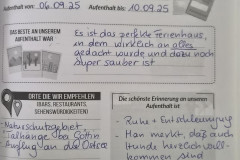 von: 06.09.25 Aufenthalt bis: 10.09.25
DAS BESTE AN UNSEREM
AUFENTHALT WAR
Es ist das perfekte Ferienhaus,
in dem wirklich an alles
gedacht wurde und dazu noch
super sauber ist
ORTE DIE WIR EMPFEHLEN
(BARS, RESTAURANTS,
SEHENSWÜRDIGKEITEN)
- Naturschutzgebiet
Ausflug an die Ostsee
Die schönste Erinnerung an unseren
Aufenthalt ist
- Ruhe + Entschleunigung
- Man merkt, daß auch
Hunde herzlich will-
kommen sind